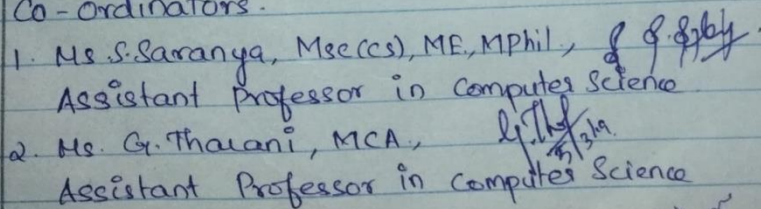 Co-Ordinators.
1. Ms. S. Saranya, Msc(cs), ME., MPhil.,
Assistant Professor in Computer Science
2. Ms. G. Tharani, MCA.,
Assistant Professor in Computer Science